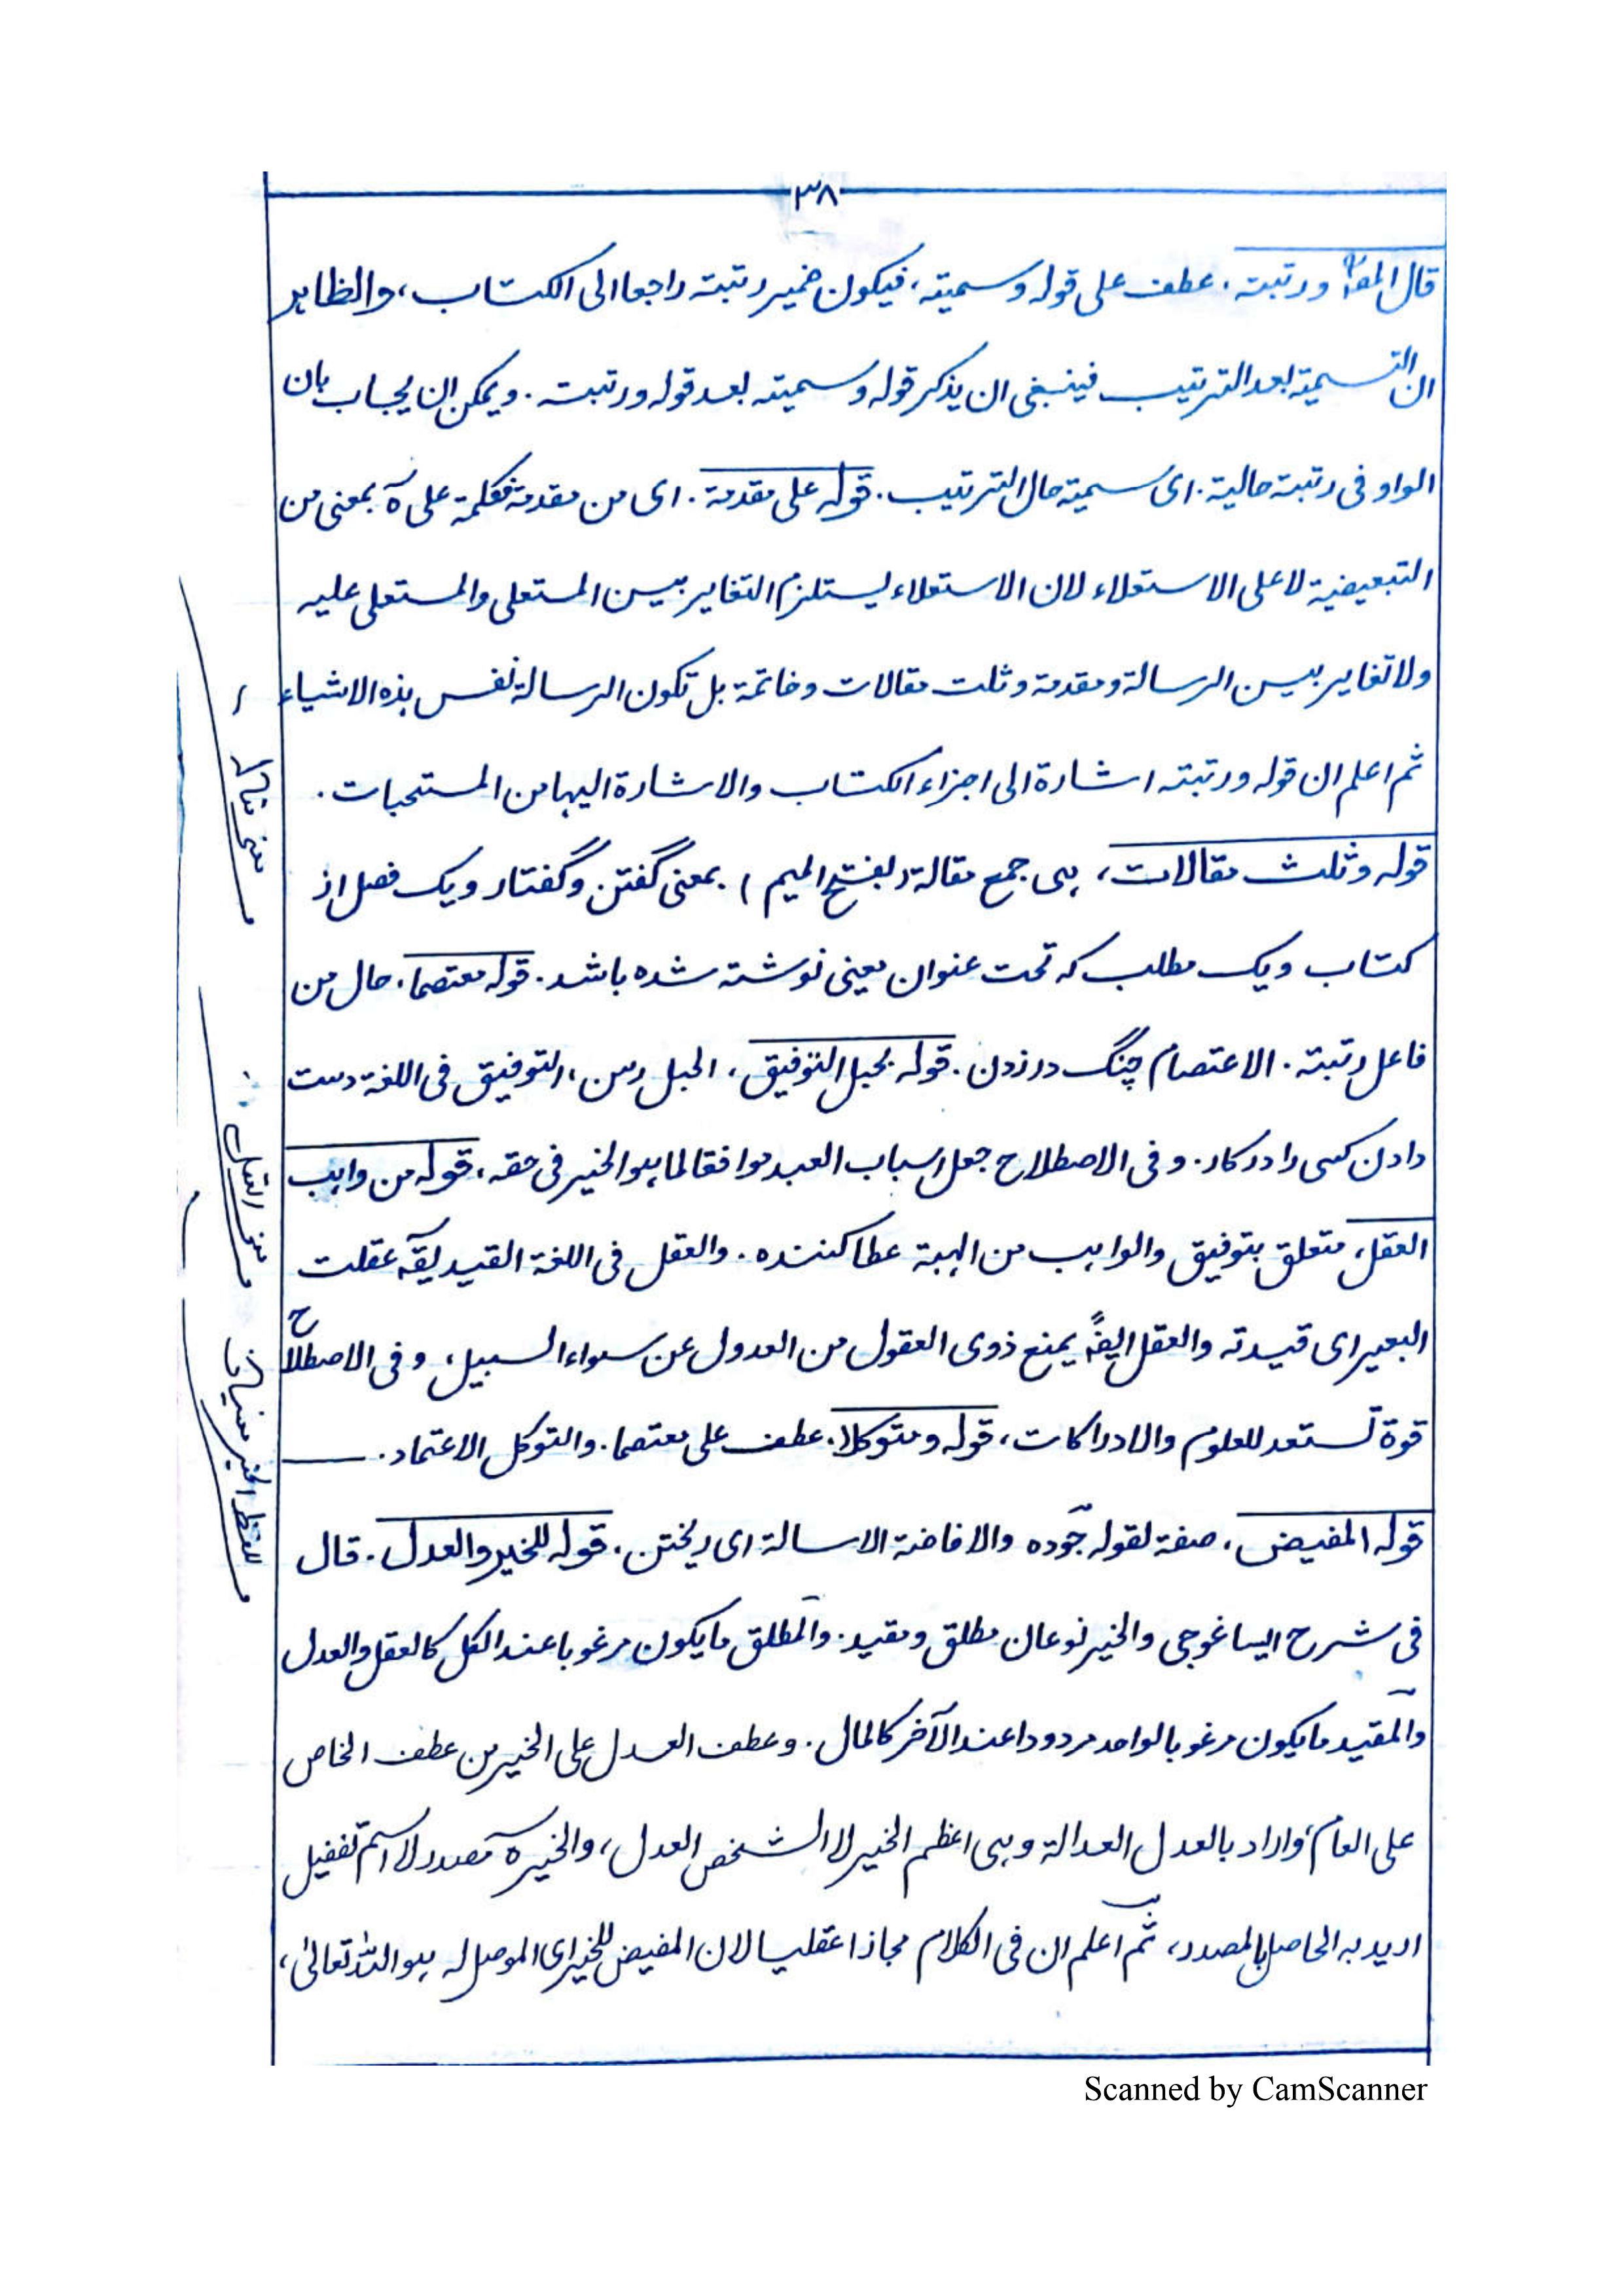 ٣٨
قال المصـ ورتبته، عطف على قوله وسميته، فيكون ضمير رتبته راجعا الى الكتاب، والظاهر
ان التسمية بعد الترتيب فينبغى ان يذكر قوله وسميته بعد قوله ورتبته. ويمكن ان يجاب بان
الواو فى رتبته حالية. اى سميته حال الترتيب. قوله على مقدمة. اى من مقدمة فكلمة على ه بمعنى من
التبعيضية لا على الاستعلاء لان الاستعلاء يستلزم التغاير بين المستعلى والمستعلى عليه
ولا تغاير بين الرسالة ومقدمة وثلث مقالات وخاتمة بل تكون الرسالة نفس هذه الاشياء
ثم اعلم ان قوله ورتبته اشارة الى اجزاء الكتاب والاشارة اليها من المستحبات.
قوله وثلث مقالات، هى جمع مقالة (بفتح الميم) بمعنى گفتن وگفتار ويک فصل از
كتاب ويک مطلب كه تحت عنوان معينى نوشته شده باشد. قوله معتصما، حال من
فاعل رتبته. الاعتصام چنگ در زدن. قوله بحبل التوفيق، الحبل رسن، التوفيق فى اللغة دست
دادن كسى را در كار. وفى الاصطلاح جعل اسباب العبد موافقا لما هو الخير فى حقه، قوله من واهب
العقل، متعلق بتوفيق والواهب من الهبة عطا كننده. والعقل فى اللغة القيد يقۤ عقلت
البعير اى قيدته والعقل ايضۤ يمنع ذوى العقول من العدول عن سواء السبيل، وفى الاصطلاح
قوة تستعد للعلوم والادراكات، قوله ومتوكلا. عطف على معتصما. والتوكل الاعتماد.
قوله المفيض، صفة لقوله جوده والافاضة الاسالة اى ريختن. قوله للخير والعدل. قال
فى شرح ايساغوجى والخير نوعان مطلق ومقيد. والمطلق ما يكون مرغوبا عند الكل كالعقل والعدل
والمقيد ما يكون مرغوبا لواحد مردودا عند الآخر كالمال. وعطف العدل على الخير من عطف الخاص
على العام، واراد بالعدل العدالة وهى اعظم الخير لا الشخص العدل، والخير ه مصدر لا اسم تفضيل
اريد به الحاصل بالمصدر، ثم اعلم ان فى الكلام مجازا عقليا لان المفيض للخير اى الموصل له هو الله تعالىٰ،
معنى مقالة
معنى العقل
للفظ الخير معنيان
Scanned by CamScanner